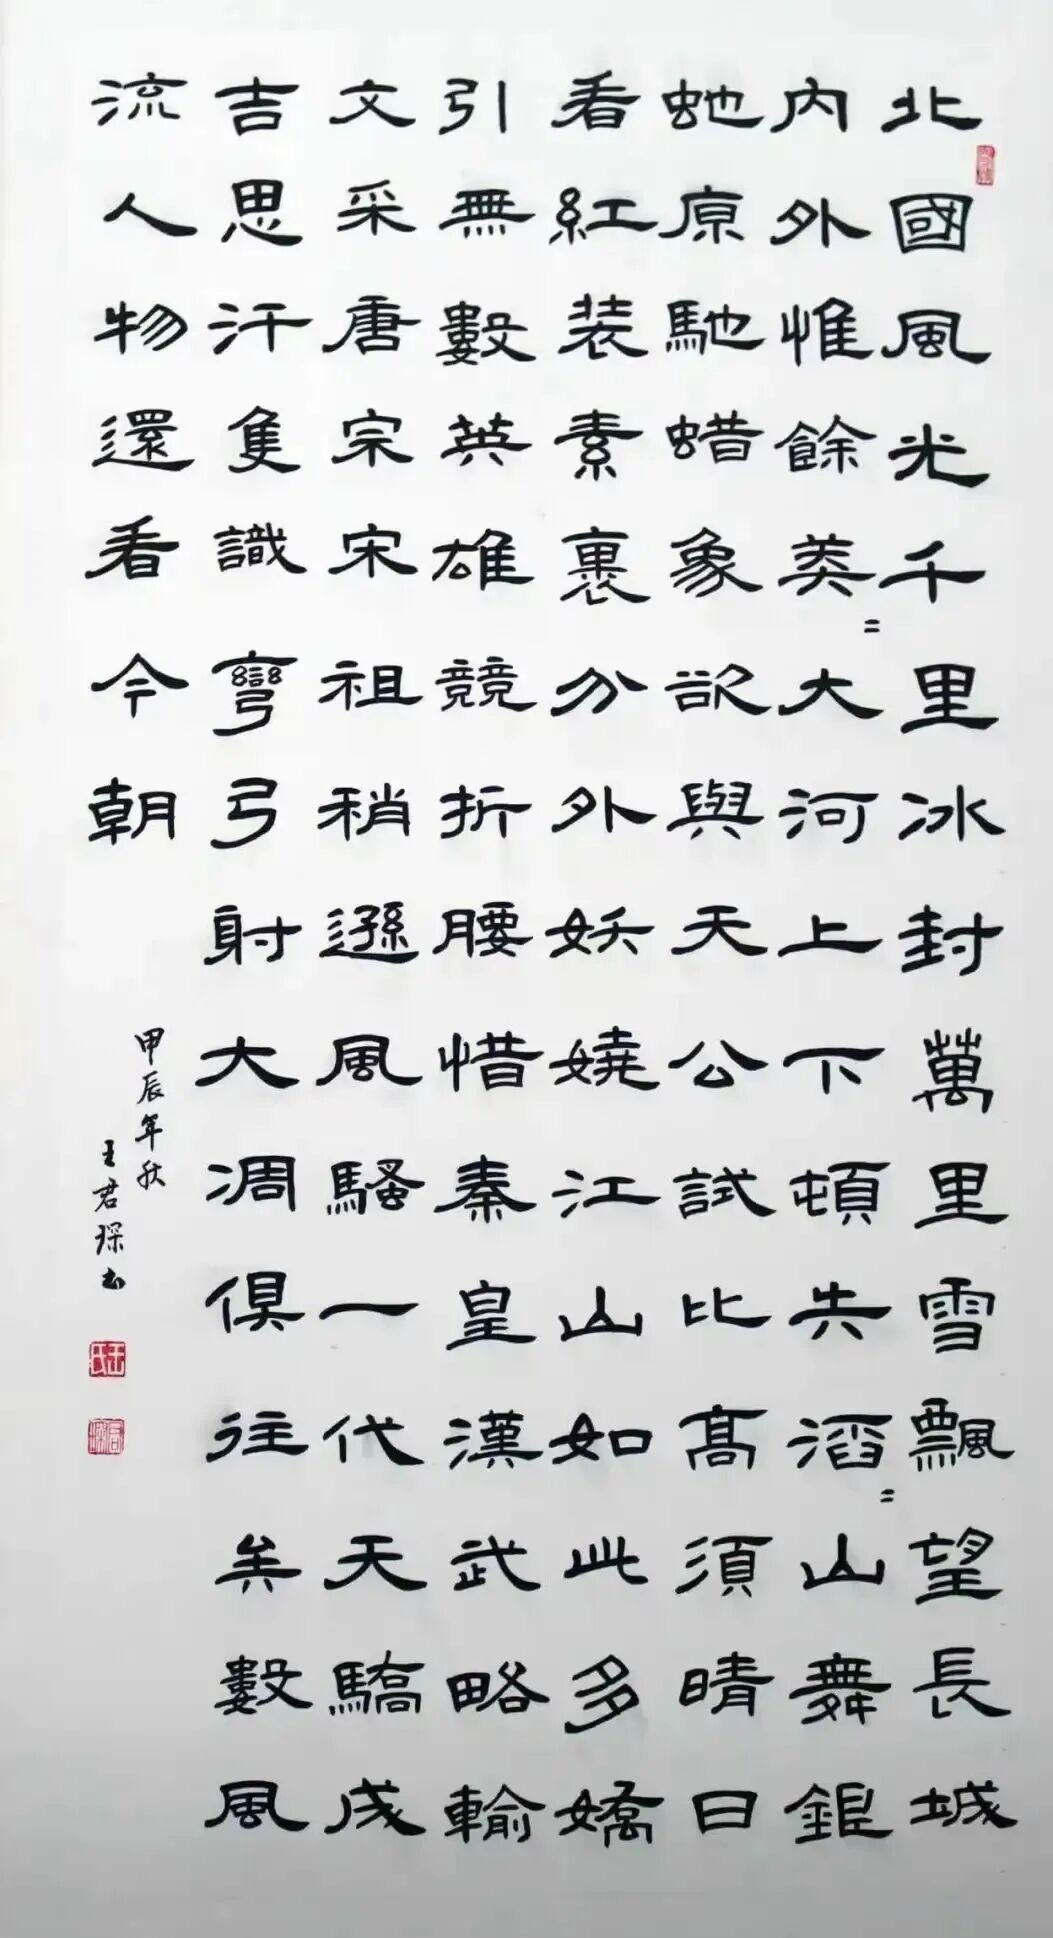 北國風光千里冰封萬里雪飄望長城
內外惟餘莽〻大河上下頓失滔〻山舞銀
虵原馳蜡象欲與天公試比髙須晴日
看紅装素裹分外妖嬈江山如此多嬌
引無數英雄競折腰惜秦皇漢武略輸
文采唐宗宋祖稍遜風騷一代天驕成
吉思汗隻識彎弓射大凋俱往矣數風
流人物還看今朝
甲辰年秋
王君琛书
王氏